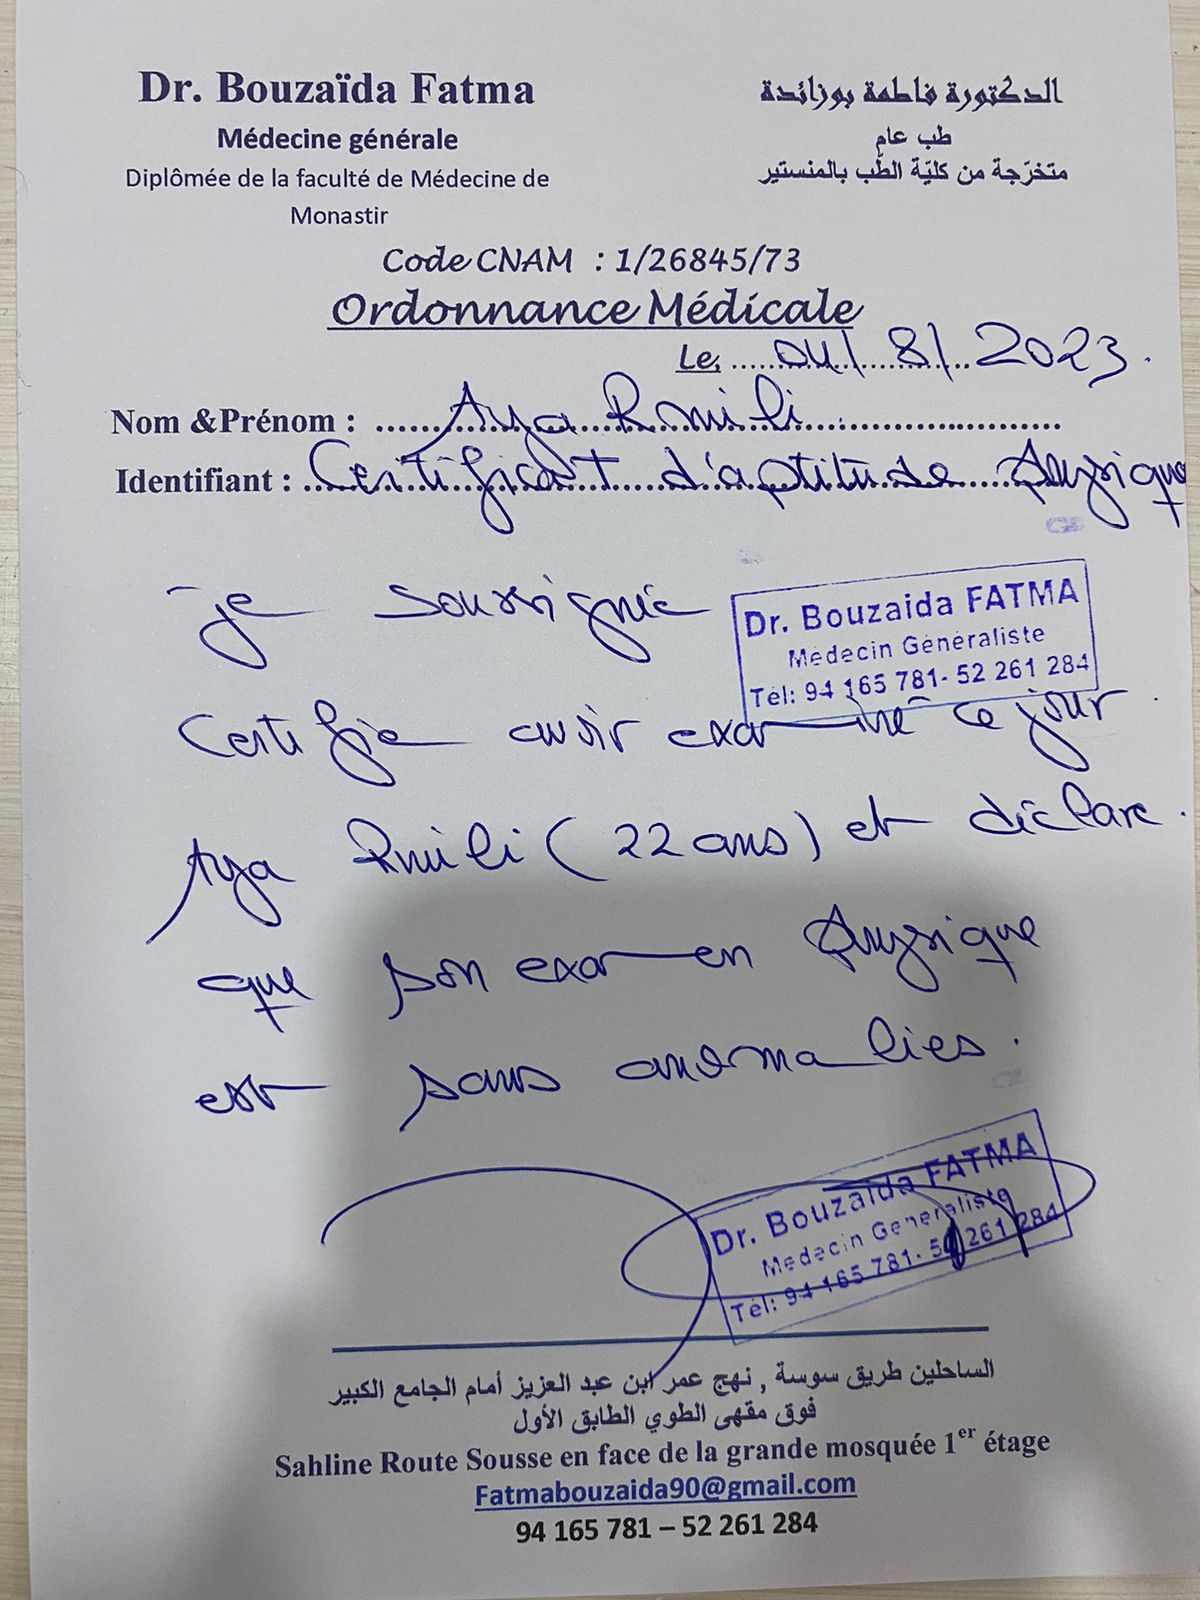 Dr. Bouzaïda Fatma
Médecine générale
Diplômée de la faculté de Médecine de
Monastir
الدكتورة فاطمة بوزائدة
طب عام
متخرّجة من كليّة الطّب بالمنستير
Code CNAM : 1/26845/73
Ordonnance Médicale
Le, 04/8/2023.
Nom &Prénom : Aya Rmili
Identifiant : Certificat d'aptitude physique
Je soussignée
Dr. Bouzaida FATMA
Médecin Généraliste
Tél: 94 165 781- 52 261 284
Certifie avoir examiné ce jour
Aya Rmili (22 ans) et déclare
que son examen physique
est sans anomalies.
Dr. Bouzaida FATMA
Médecin Généraliste
Tél: 94 165 781- 52 261 284
الساحلين طريق سوسة , نهج عمر ابن عبد العزيز أمام الجامع الكبير
فوق مقهى الطوي الطابق الأول
Sahline Route Sousse en face de la grande mosquée 1er étage
Fatmabouzaida90@gmail.com
94 165 781 – 52 261 284